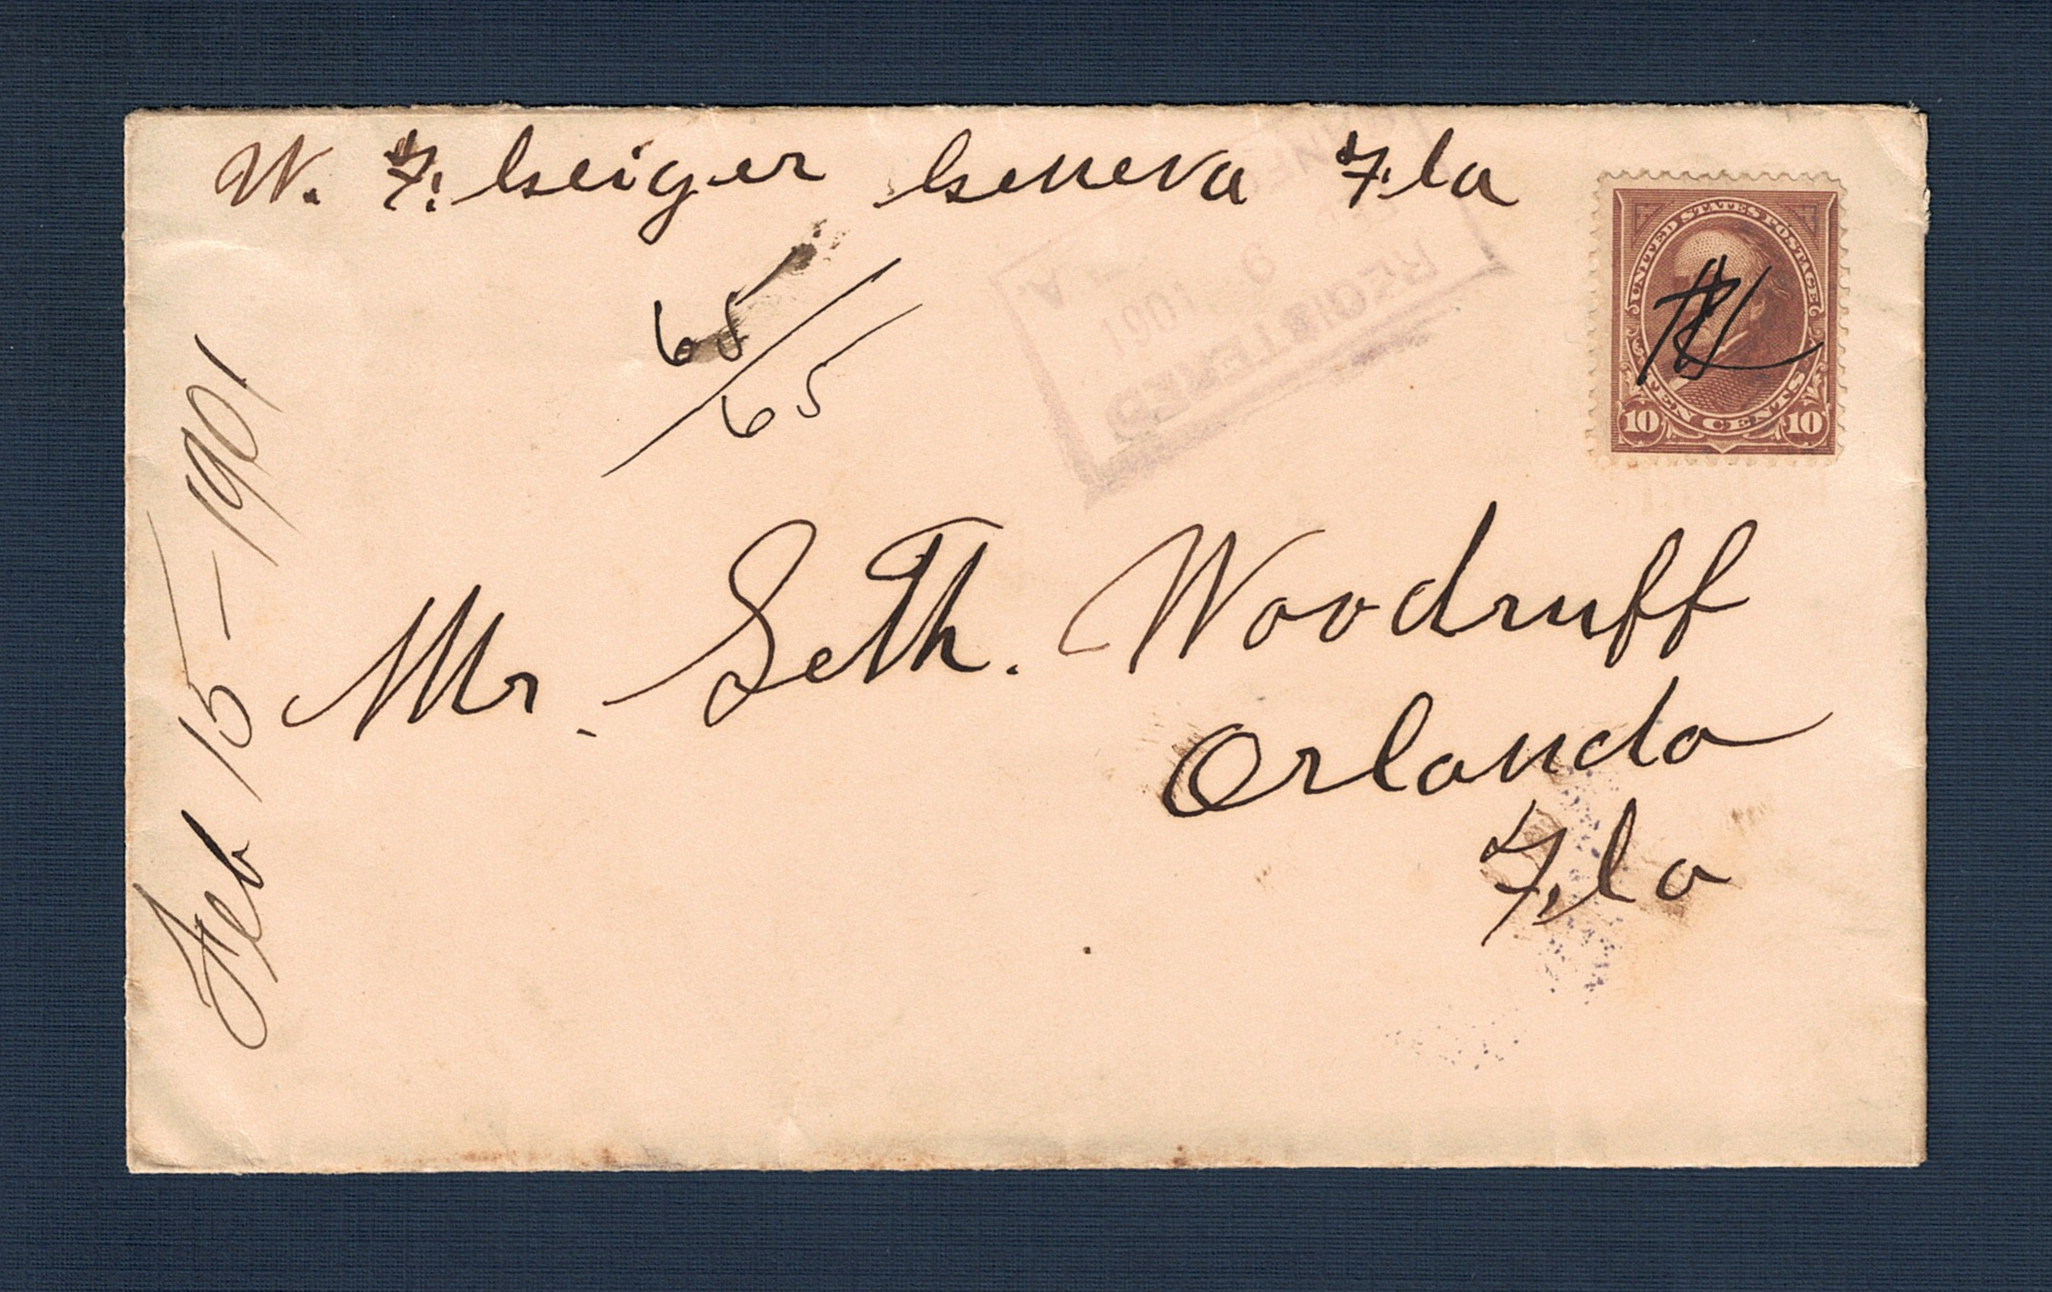 W. F. Geiger Geneva Fla
65
65
Feb 15-1901
Mr. Seth. Woodruff
Orlando
Fla
UNITED STATES POSTAGE
TEN CENTS
10 10
REGISTERED
1901